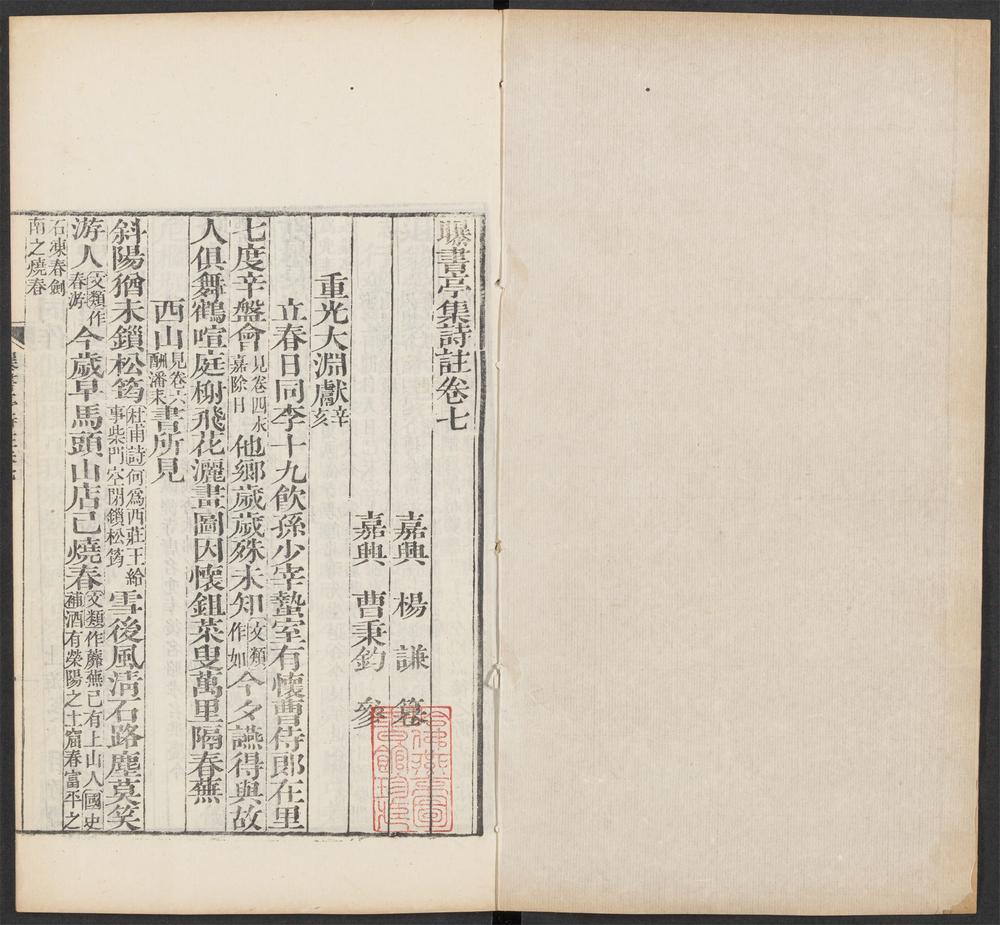 曝書亭集詩註卷七
嘉興 楊 謙 篹
嘉興 曹秉鈞 參
重光大淵獻辛亥
立春日同李十九飲孫少宰蟄室有懷曹侍郎在里
七度辛盤會見卷四永嘉除日他鄉歲歲殊未知文類作如今夕讌得與故
人俱舞鶴喧庭樹飛花灑畫圖因懷鉏菜叟萬里隔春蕪
西山見卷六酬潘耒書所見
斜陽猶未鎖松筠杜甫詩何爲西莊王給事柴門空閉鎖松筠雪後風淸石路塵莫笑
游人文類作春游今歲早馬頭山店已燒春文類作蘼蕪已有上山人國史補酒有滎陽之土窟春富平之
石凍春劍南之燒春